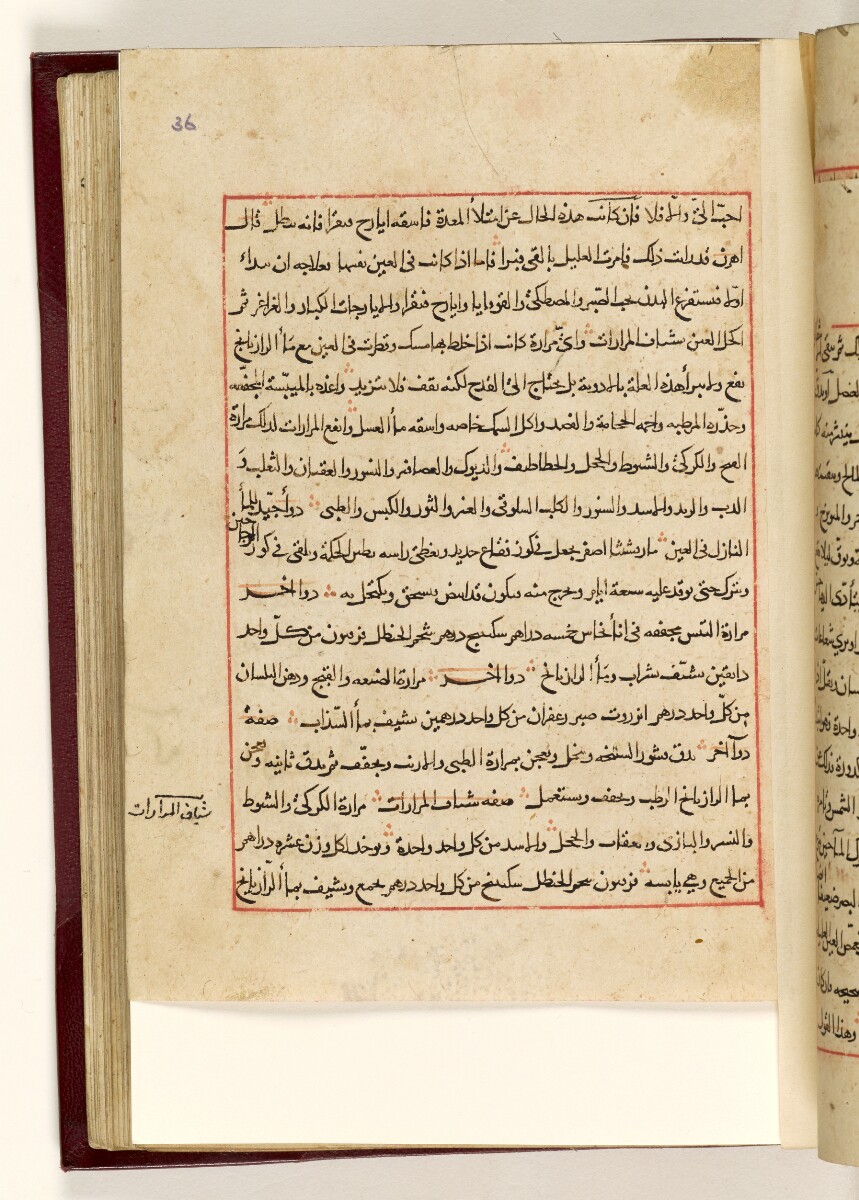 36
احبّ القئ والا فلا فان كانت هذه الحال عن امتلأ المعدة فاسقه ايارج فيقرا فانه يبطل قال
اهرن قد رات ذلك فامرت العليل بالقى فبرا فاما اذا كانت فى العين نفسها فعلاجه ان يبداء
اولا فيستفرغ البدن بحب الصبر والمصطكى والقوقايا وايارج فيقرا والايارجات الكبار والغراغر ثم
اكحل العين بشياف المرارات واىّ مرارة كانت اذا خلط بها مسك وقطرت فى العين مع مأ الرازيانج
نفع ولم يبرأ هذه العلة بالادوية بل يحتاج الى القدح لكنه يقف فلا يتزيد واغذه بالميبّسة المجففه
وحذره المرطبه وانهه الحجامة والفصد واكل السمك خاصه واسقه مأ العسل وانفع المرارات لذلك مرارة
القبج والكركى والشبوط والحجل والخطاطيف والديوك والعصافير والنسور والعقبان والثعلب و
الدب والوبر والاسد والسنور والكلب السلوقى والعنز والثور والكبش والظبى دوا جيّد للمأ
النازل فى العين مارقشيثا اصفر يجعل فى كوز فقاع جديد ويغطى راسه بطين الحكمة ويلقى فى كوز
الزجاجين
ويترك حتى يوقد عليه سبعة ايام ويخرج منه يكون قد ابيض يسحق ويكتحل به دوا اخر
مرارة التيس مجففه فى انأ نحاس خمسه دراهم سكبينج درهم شحم الحنظل فربيون من كلّ واحد
دانقين يشيّف بشراب ومأ الرازيانج دوا اخر مرارة الضبعه والقبج ودهن البلسان
من كلّ واحد درهم انزروت صبر زعفران من كل واحد درهمين يشيف بمأ السّذاب صفة
دوآ آخر يدق بشور السليخه وينخل ويعجن بمرارة الظبى والارنب ويجفّف ثم يدق ثانيه ويعجن
بمأ الرازيانج الرطب ويجفف ويستعمل صفه شياف المرارات مرارة الكركى والشبوط
والنسر والبازى والعقاب والحجل والاسد من كل واحد واحدة ويوخذ لكل وزن عشره دراهم
من الجميع وهى يابسه فربيون شحم الحنظل سكبينج من كل واحد درهم يجمع ويشيف بمأ الرازيانج
شياف المرارات